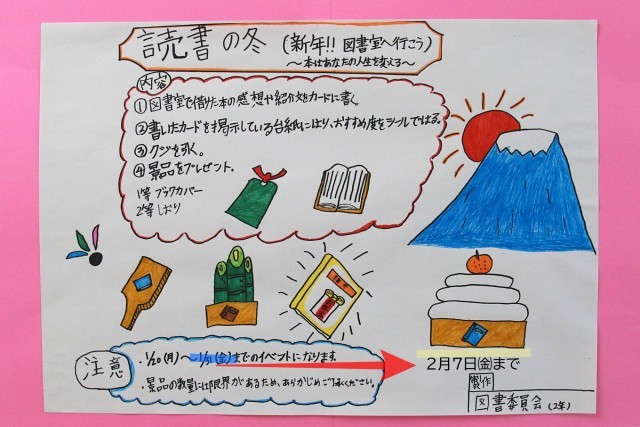 読書の冬(新年!! 図書室へ行こう)
〜本はあなたの人生を変える〜
内容
①図書室で借りた本の感想や紹介文をカードに書く。
②書いたカードを掲示している台紙にはり、おすすめ度をシールではる。
③クジを引く。
④景品をプレゼント。
1等 ブックカバー
2等 しおり
注意
・1/20(月)〜1/31(金)までのイベントになります
2月7日㈮まで
・景品の数量には限界があるため、あらかじめご了承ください。
製作
図書委員会(2年)